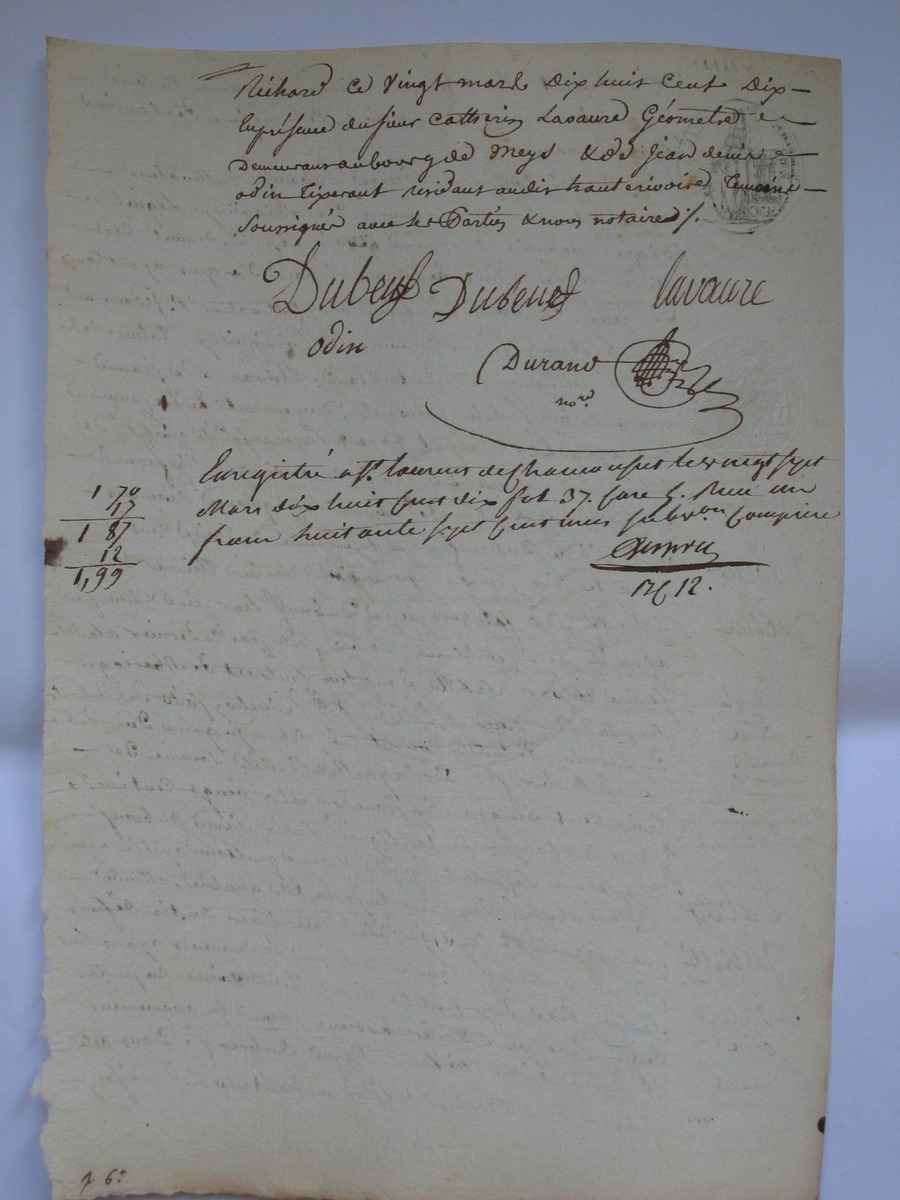 Richard ce Vingt mars dix huit cent dix
En présence du sieur Lavaure Géometre
Demeurant au bourg de Meys & de Jean denis
odin Tixerant residant audit hauterivoire Temoins
Soussignés avec les Parties & nous notaire /.
Dubeuf Dubeuf lavaure
odin
Durand
nore
Enregistré a St. laurens de Chamousset le vingt sept
Mars dix huit cent dix fol 37. Care 5. Reçu un
franc huitante sept cent mes subvon Comprise
1 70
17
1 87
12
1,99
12.